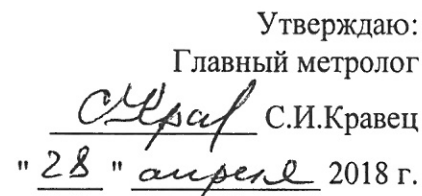 Утверждаю:
Главный метролог
С.И.Кравец
" 28 " апреля 2018 г.